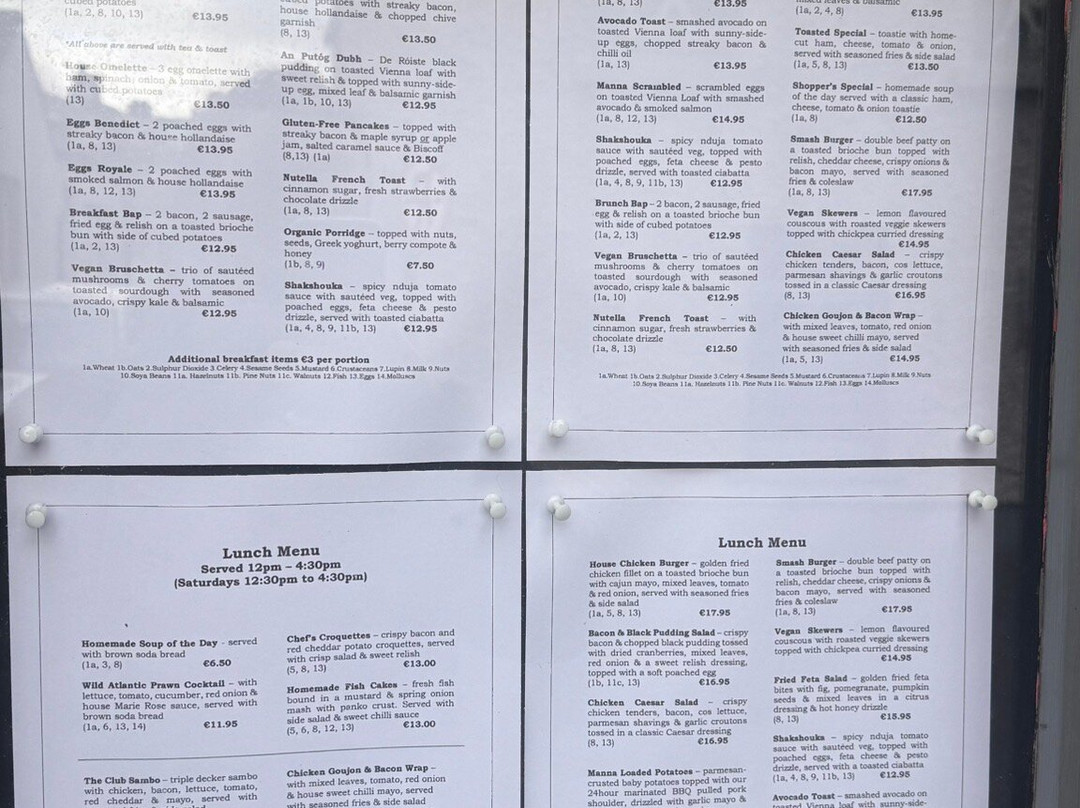 cubed potatoes
(1a, 2, 8, 10, 13) €13.95
*All above are served with tea & toast
House Omelette – 3 egg omelette with
ham, spinach, onion & tomato, served
with cubed potatoes
(13) €13.50
Eggs Benedict – 2 poached eggs with
streaky bacon & house hollandaise
(1a, 8, 13) €13.95
Eggs Royale – 2 poached eggs with
smoked salmon & house hollandaise
(1a, 8, 12, 13) €13.95
Breakfast Bap – 2 bacon, 2 sausage,
fried egg & relish on a toasted brioche
bun with side of cubed potatoes
(1a, 2, 13) €12.95
Vegan Bruschetta – trio of sautéed
mushrooms & cherry tomatoes on
toasted sourdough with seasoned
avocado, crispy kale & balsamic
(1a, 10) €12.95
cubed potatoes with streaky bacon,
house hollandaise & chopped chive
garnish
(8, 13) €13.50
An Putóg Dubh – De Róiste black
pudding on toasted Vienna loaf with
sweet relish & topped with sunny-side-
up egg, mixed leaf & balsamic garnish
(1a, 1b, 10, 13) €12.95
Gluten-Free Pancakes – topped with
streaky bacon & maple syrup or apple
jam, salted caramel sauce & Biscoff
(8,13) (1a) €12.50
Nutella French Toast – with
cinnamon sugar, fresh strawberries &
chocolate drizzle
(1a, 8, 13) €12.50
Organic Porridge – topped with nuts,
seeds, Greek yoghurt, berry compote &
honey
(1b, 8, 9) €7.50
Shakshouka – spicy nduja tomato
sauce with sautéed veg, topped with
poached eggs, feta cheese & pesto
drizzle, served with toasted ciabatta
(1a, 4, 8, 9, 11b, 13) €12.95
Additional breakfast items €3 per portion
1a.Wheat 1b.Oats 2.Sulphur Dioxide 3.Celery 4.Sesame Seeds 5.Mustard 6.Crustaceans 7.Lupin 8.Milk 9.Nuts
10.Soya Beans 11a. Hazelnuts 11b. Pine Nuts 11c. Walnuts 12.Fish 13.Eggs 14.Molluscs
(1a, 8, 13) €13.95
Avocado Toast – smashed avocado on
toasted Vienna loaf with sunny-side-
up eggs, chopped streaky bacon &
chilli oil
(1a, 13) €13.95
Manna Scrambled – scrambled eggs
on toasted Vienna Loaf with smashed
avocado & smoked salmon
(1a, 8, 12, 13) €14.95
Shakshouka – spicy nduja tomato
sauce with sautéed veg, topped with
poached eggs, feta cheese & pesto
drizzle, served with toasted ciabatta
(1a, 4, 8, 9, 11b, 13) €12.95
Brunch Bap – 2 bacon, 2 sausage, fried
egg & relish on a toasted brioche bun
with side of cubed potatoes
(1a, 2, 13) €12.95
Vegan Bruschetta – trio of sautéed
mushrooms & cherry tomatoes on
toasted sourdough with seasoned
avocado, crispy kale & balsamic
(1a, 10) €12.95
Nutella French Toast – with
cinnamon sugar, fresh strawberries &
chocolate drizzle
(1a, 8, 13) €12.50
mixed leaves & balsamic
(1a, 2, 4, 8) €13.95
Toasted Special – toastie with home-
cut ham, cheese, tomato & onion,
served with seasoned fries & side salad
(1a, 5, 8, 13) €13.50
Shopper's Special – homemade soup
of the day served with a classic ham,
cheese, tomato & onion toastie
(1a, 8) €12.50
Smash Burger – double beef patty on
a toasted brioche bun topped with
relish, cheddar cheese, crispy onions &
bacon mayo, served with seasoned
fries & coleslaw
(1a, 8, 13) €17.95
Vegan Skewers – lemon flavoured
couscous with roasted veggie skewers
topped with chickpea curried dressing
€14.95
Chicken Caesar Salad – crispy
chicken tenders, bacon, cos lettuce,
parmesan shavings & garlic croutons
tossed in a classic Caesar dressing
(8, 13) €16.95
Chicken Goujon & Bacon Wrap –
with mixed leaves, tomato, red onion
& house sweet chilli mayo, served
with seasoned fries & side salad
(1a, 5, 13) €14.95
1a.Wheat 1b.Oats 2.Sulphur Dioxide 3.Celery 4.Sesame Seeds 5.Mustard 6.Crustaceans 7.Lupin 8.Milk 9.Nuts
10.Soya Beans 11a. Hazelnuts 11b. Pine Nuts 11c. Walnuts 12.Fish 13.Eggs 14.Molluscs
Lunch Menu
Served 12pm – 4:30pm
(Saturdays 12:30pm to 4:30pm)
Homemade Soup of the Day - served
with brown soda bread
(1a, 3, 8) €6.50
Wild Atlantic Prawn Cocktail – with
lettuce, tomato, cucumber, red onion &
house Marie Rose sauce, served with
brown soda bread
(1a, 6, 13, 14) €11.95
Chef's Croquettes – crispy bacon and
red cheddar potato croquettes, served
with crisp salad & sweet relish
(5, 8, 13) €13.00
Homemade Fish Cakes – fresh fish
bound in a mustard & spring onion
mash with panko crust. Served with
side salad & sweet chilli sauce
(5, 6, 8, 12, 13) €13.00
The Club Sambo – triple decker sambo
with chicken, bacon, lettuce, tomato,
red cheddar & mayo, served with
Chicken Goujon & Bacon Wrap –
with mixed leaves, tomato, red onion
& house sweet chilli mayo, served
with seasoned fries & side salad
Lunch Menu
House Chicken Burger – golden fried
chicken fillet on a toasted brioche bun
with cajun mayo, mixed leaves, tomato
& red onion, served with seasoned fries
& side salad
(1a, 5, 8, 13) €17.95
Bacon & Black Pudding Salad – crispy
bacon & chopped black pudding tossed
with dried cranberries, mixed leaves,
red onion & a sweet relish dressing,
topped with a soft poached egg
(1b, 11c, 13) €16.95
Chicken Caesar Salad – crispy
chicken tenders, bacon, cos lettuce,
parmesan shavings & garlic croutons
tossed in a classic Caesar dressing
(8, 13) €16.95
Manna Loaded Potatoes – parmesan-
crusted baby potatoes topped with our
24hour marinated BBQ pulled pork
shoulder, drizzled with garlic mayo &
Smash Burger – double beef patty on
a toasted brioche bun topped with
relish, cheddar cheese, crispy onions &
bacon mayo, served with seasoned
fries & coleslaw
(1a, 8, 13) €17.95
Vegan Skewers – lemon flavoured
couscous with roasted veggie skewers
topped with chickpea curried dressing
€14.95
Fried Feta Salad – golden fried feta
bites with fig, pomegranate, pumpkin
seeds & mixed leaves in a citrus
dressing & hot honey drizzle
(8, 13) €15.95
Shakshouka – spicy nduja tomato
sauce with sautéed veg, topped with
poached eggs, feta cheese & pesto
drizzle, served with a toasted ciabatta
(1a, 4, 8, 9, 11b, 13) €12.95
Avocado Toast – smashed avocado on
toasted Vienna loaf with sunny-side-